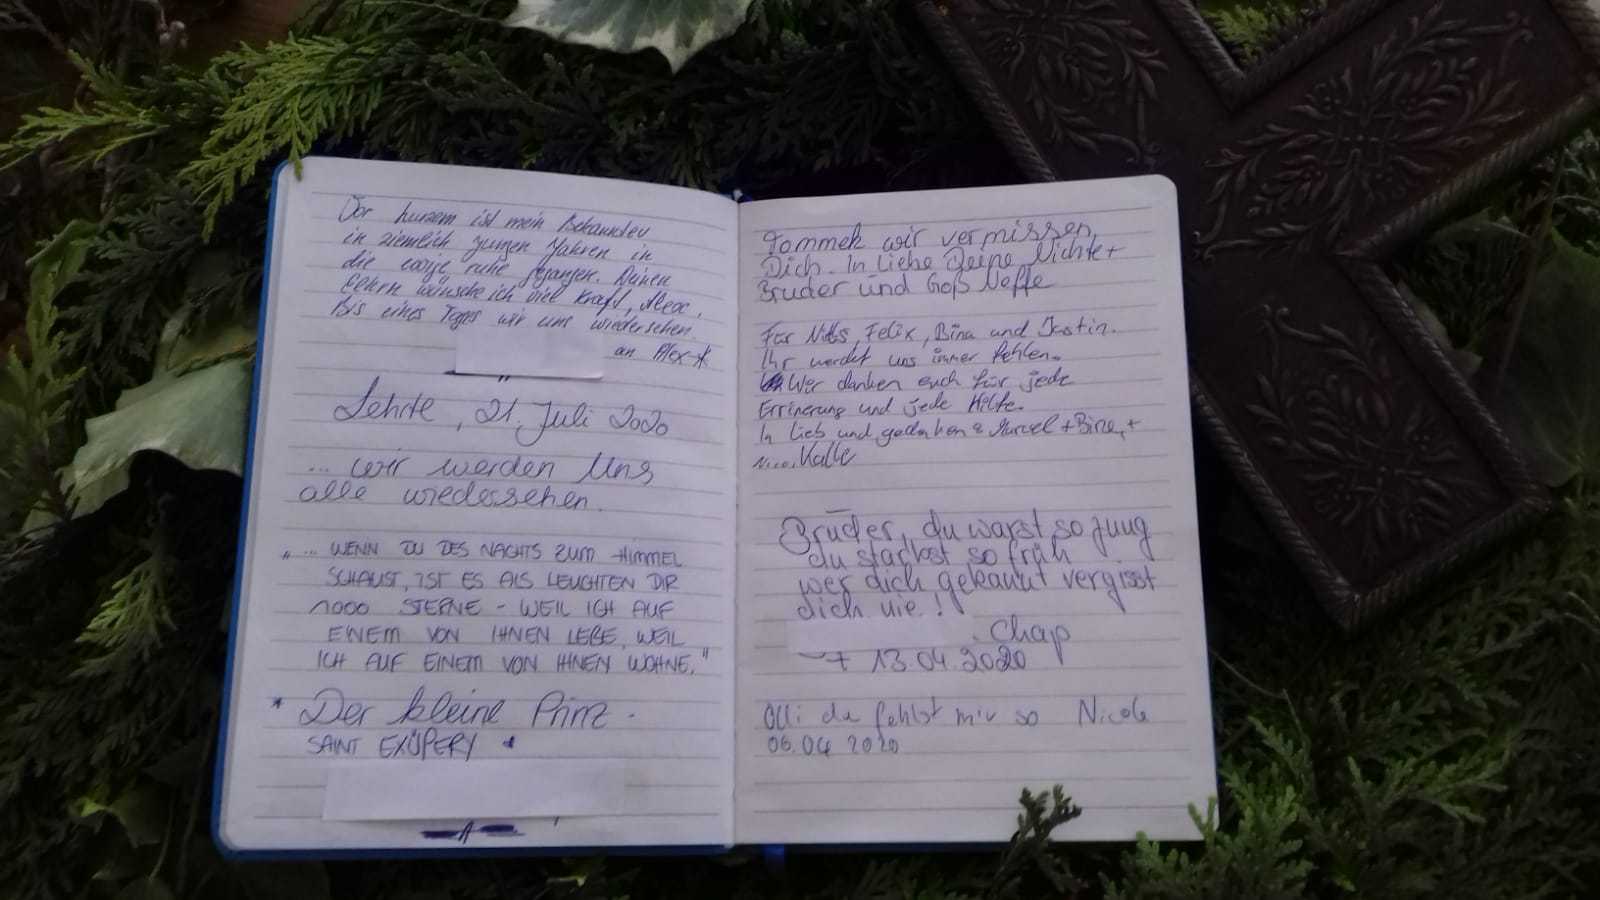 Vor kurzem ist mein Bekannter
in ziemlich jungen Jahren in
die ewige ruhe gegangen. Deinen
Eltern wünsche ich viel Kraft, Alex,
Bis eines Tages wir uns wiedersehen.
an Alex
Lehrte, 21. Juli 2020
... wir werden Uns
alle wiedersehen.
„... WENN DU DES NACHTS ZUM HIMMEL
SCHAUST, IST ES ALS LEUCHTEN DIR
1000 STERNE - WEIL ICH AUF
EINEM VON IHNEN LEBE, WEIL
ICH AUF EINEM VON IHNEN WOHNE."
* Der kleine Prinz -
SAINT EXÜPERY
Tommek wir vermissen
Dich. In Liebe Deine Nichte +
Bruder und Goß Neffe
Für Nills, Felix, Bina und Justin.
Ihr werdet uns immer fehlen.
Wer danken euch für jede
Errinerung und jede Hilfe.
In Lieb und gedanken Marcel + Bine, +
Nico, Kalle
Brüder, du warst so jung
du starbst so früh
wer dich gekannt vergisst
dich nie!
Chap
+ 13.04.2020
Olli du fehlst mir so Nicole
06.04 2020